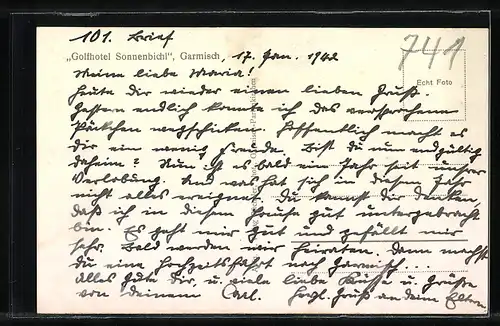 101. Brief
741
„Golfhotel Sonnenbichl", Garmisch, 17. Jan. 1942
Echt Foto
Meine liebe Maria!
Heute Dir wieder einen lieben Gruß.
Gestern endlich konnte ich das versprochene
Päckchen wegschicken. Hoffentlich macht es
Dir ein wenig Freude. Bist Du nun endgültig
daheim? Nun ist es bald ein Jahr seit unsrer
Verlobung. Und was hat sich in diesem Jahr
nicht alles ereignet. Du kannst Dir denken,
daß ich in diesem Hause gut untergebracht
bin. Es geht mir gut und gefällt mir
sehr. Bald werden wir heiraten. Dann machst
Du eine Hochzeitsfahrt nach Garmisch...
Alles Gute Dir, u. viele liebe Küsse u. Grüße
von Deinem Carl. Herzl. Gruß an Deine Eltern